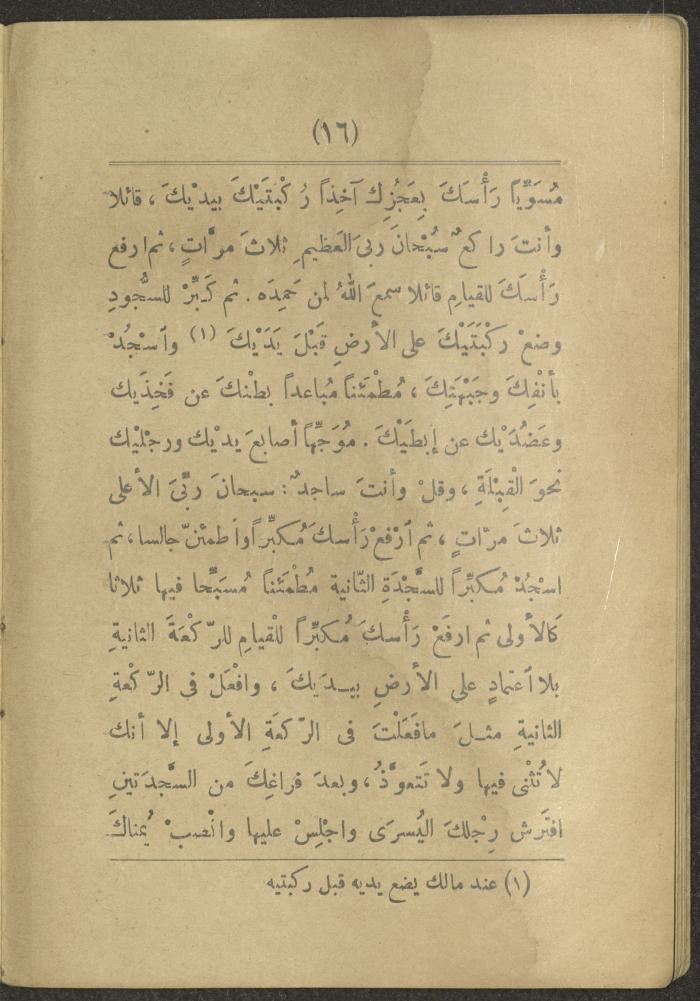 (١٦)
مُسَوِّياً رَأْسَكَ بِعَجُزِك آخِذاً رُكْبَتَيْكَ بيدْيكَ ، قائلا
وأنتَ راكعٌ سُبْحانَ ربىَ العَظيمِ ثلاثَ مرَّاتٍ ، ثم ارفع
رَأْسَكَ للقيامِ قائلا سمعَ اللهُ لمن حَمِدَه . ثم كَبِّرْ للسُّجودِ
وضعْ ركْبَتَيْكَ على الأرضِ قَبْلَ يَدَيْكَ (١) واَسْجُدْ
بأنْفِكَ وجَبْهَتِكَ ، مُطْمَئناً مُباعداً بطْنكَ عن فَخِذَيك
وعَضُدَيْك عن إبطَيْكَ . مُوَجِّهاً أصابعَ يديْك ورجْليْك
نحوَ الْقِبْلَةِ ، وقلْ وأنتَ ساجدٌ : سبحانَ ربِّىَ الأعلى
ثلاثَ مرّاتٍ ، ثم اَرْفعْ رَأْسكَ مُكبِّراً واَطمئنّ جالسا ، ثم
اسْجُدْ مُكبِّراً للسَّجْدَةِ الثّانية مُطْمَئناً مُسَبِّحا فيها ثلاثا
كَالأولى ثم ارفَعْ رَأْسكَ مُكبِّراً للْقيامِ للرّكْعَةَ الثانيةِ
بلا اَعتمادٍ على الأرضِ بيـدَيكَ ، وافْعَلْ فى الرّكْعةِ
الثانيةِ مثـلَ مافَعَلْتَ فى الرّكعَةِ الأولى إلا أنك
لا تُثْنى فيها ولا تَتعوَّذُ ، وبعدَ فراغِكَ من السَّجدَتينِ
افتَرش رِجْلكَ اليُسرَى واجْلِسْ عليها وانْصبْ يُمناكَ
(١) عند مالك يضع يديه قبل ركبتيه